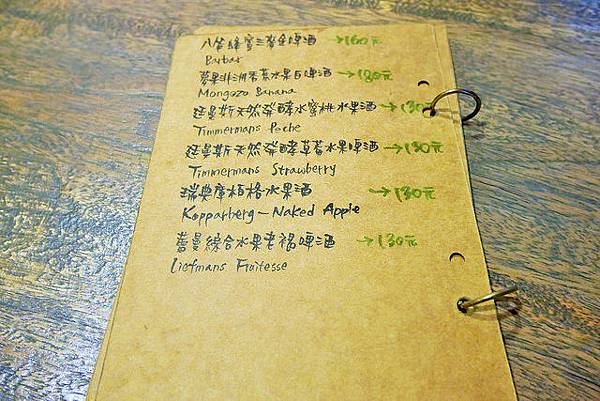 八笛蜂蜜三麥金啤酒 →160元
Barbar
夢果非洲香蕉水果白啤酒 →180元
Mongozo Banana
廷曼斯天然發酵水蜜桃水果酒 →130
Timmermans Peche
廷曼斯天然發酵草莓水果啤酒 →130元
Timmermans Strawberry
瑞典庫柏格水果酒 →130元
Kopparberg-Naked Apple
蕾曼綜合水果老褐啤酒 →130元
Liefmans Fruitesse